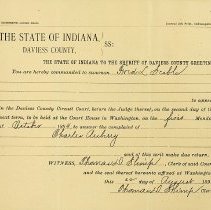 THE STATE OF INDIANA,
DAVIESS COUNTY,
SS:
THE STATE OF INDIANA TO THE SHERIFF OF DAVIESS COUNTY GREETING
You are hereby commanded to summon
to the Daviess County Circuit Court, before the Judge thereof, on the second day of the
next term, to be held at the Court House in Washington, on the first Monday
October 189 to answer the complaint of
Charles
and of this writ make due return.
WITNESS, Thomas D. Slimp, Clerk of said Court
and the seal thereof affixed at Washington
this 22 day of August 189
Thomas D. Slimp